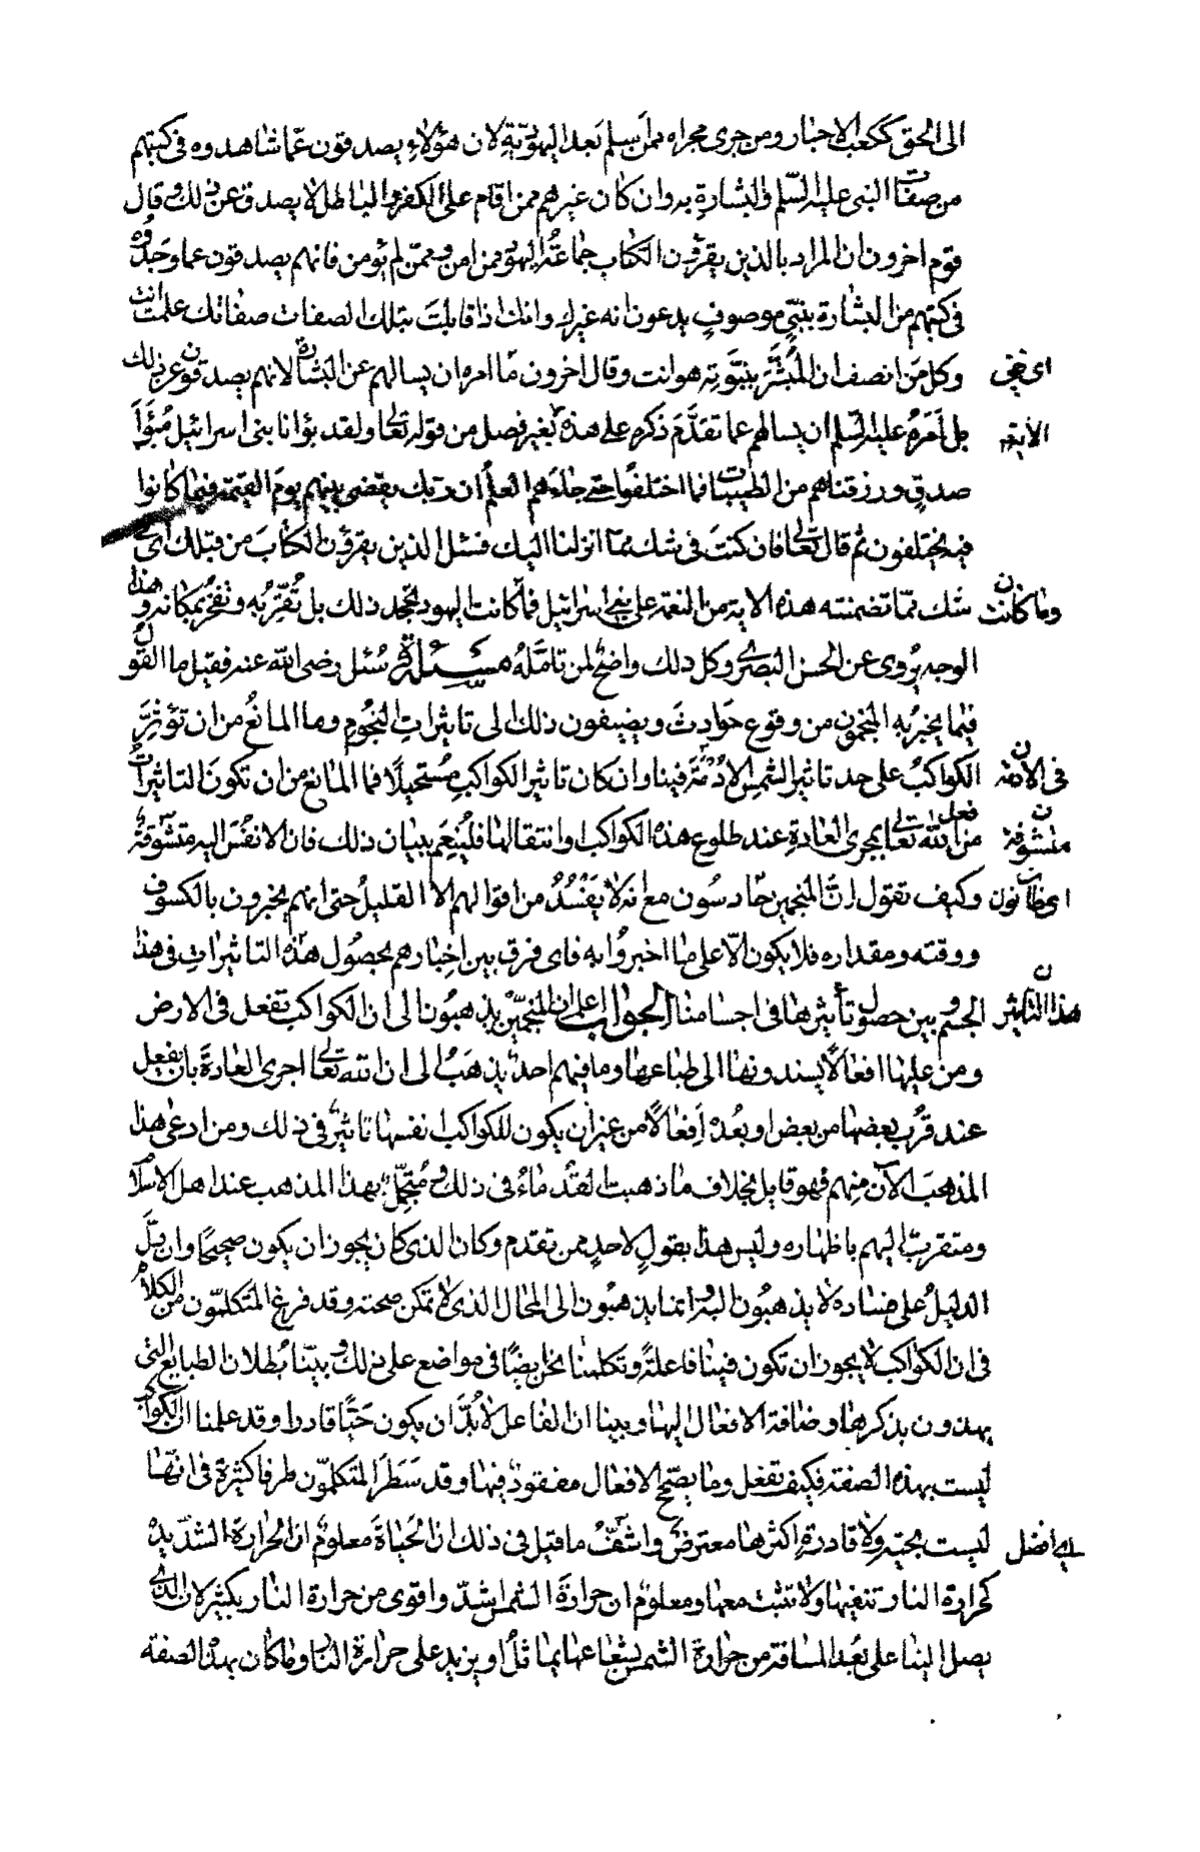 الى الحق ككعب الاحبار ومن جرى مجراه ممن اسلم بعد اليهوديّة لان هؤلاء يصدقون عمّا شاهدوه فى كتبهم
من صفات النبى عليه السّلم والبشارة به وان كان غيرهم ممن اقام على الكفر والباطل لا يصدق عن ذلك وقال
قوم اخرون ان المراد بالذين يقرؤن الكتاب جماعة اليهود ممن امن وممّن لم يؤمن فانهم يصدقون عما وجدوه
فى كتبهم من البشارة بنبىّ موصوفٍ يدعون انه غيرك وانك اذا قابلتَ بتلك الصفات صفاتك علمتَ انت
وكل من انصف ان المُبشَّر بنبوّته هو انت وقال اخرون ما امره ان يسالهم عن البشارة لانهم يصدقون عن ذلك
بل اَمَرَهُ عليه السّلم ان يسالهم عما تقدَّمَ ذكره على هذه بغير فصل من قوله تعالى ولقد بوّانا بنى اسرائيل مُبَوَّأَ
الآية
صدقٍ ورزقناهم من الطيبات فما اختلفوا حتى جاءهم العلمُ ان ربك يقضى بينهم يومَ القيمة فيما كانوا
فيه يختلفون ثم قال تعالى فان كنتَ فى شك ممّا انزلنا اليك فسئل الذين يقرؤن الكتابَ من قبلك اى فى
شك ممّا تضمنته هذه الاية من النعمة على بنى اسرائيل فما كانت اليهود تجحد ذلك بل تُقِرُّ به وتفخرُ بمكانه وهذا
وما كانت
الوجه يُروى عن الحسن البصرى وكل ذلك واضحٌ لمن تامّلهُ مسئلة سُئل رضى الله عنه فقيل ما القول
فيما يخبرُ به المنجمون من وقوع حوادثَ ويضيفون ذلك الى تاثيراتِ النجُومِ وما المانعُ من ان تؤثِّرَ
الكواكبُ على حد تاثير الشمس الادمة فينا وان كان تاثير الكواكبِ مُستحيلًا فما المانع من ان تكونَ التاثيراتُ
فى الادمة
من فعل الله تعالى بمجرى العادةِ عند طلوع هذه الكواكب وانتقالها فليُنعِم ببيان ذلك فان الانفُسَ اليه متشوّقة
متشوفة
وكيف تقول انَّ المنجمين حادسُون مع انه لا يفسُدُ من اقوالهم الا القليلُ حتى انهم يخبرون بالكسوف
ووقته ومقداره فلا يكون الّا على ما اخبروا به فاى فرق بين اخبارهم بحصُول هذه التاثيراتِ فى هذا
الجسم وبين حصول تأثيرها فى اجسامنا الجواب اعلم ان المنجّمين يذهبُون الى ان الكواكب تفعل فى الارض
هذا التاثير
ومن عليها افعالًا يسندونها الى طباعها وما فيهم احدٌ يذهَبُ الى ان الله تعالى اجرى العادةَ بان يفعل
عند قُرب بعضها من بعض او بعُده اَفعالًا من غير ان يكون للكواكب انفسها تاثيرٌ فى ذلك ومن ادعى هذا
المذهبَ الآن منهم فهو قايل بخلاف ما ذهبت القدماءُ فى ذلك ومُتجمّلٌ بهذا المذهب عند اهل الاسلام
ومتقربٌ اليهم باظهاره وليس هذا بقول لاحدٍ ممن تقدم وكان الذى كان يجوز ان يكون صحيحًا وان دلَّ
الدليلُ على فساده لا يذهبُون اليه وانما يذهبُون الى المحال الذى لا تمكن صحته وقد فرغ المتكلمّون من الكلام
فى ان الكواكب لا يجوز ان تكون فينا فاعلةً وتكلمنا نحن ايضًا فى مواضع على ذلك وبيّنا بُطلان الطبايع التى
يهذون بذكرها واضافة الافعال اليها وبينا ان الفاعل لا بُدَّ ان يكون حَيًّا قادرا وقد علمنا ان الكواكب
ليست بهذه الصفة فكيف تفعل وما يصحّح الافعال مفقودٌ فيها وقد سَطَرَ المتكلمّون طرفا كثيرة فى انّها
ليست بحيّة ولا قادرةٍ اكثرها معترضٌ واشفُّ ما قيل فى ذلك ان الحياةَ معلومٌ ان الحرارة الشّديدةَ
اى افضل
كحرارة النار تنفيها ولا تثبت معها ومعلومٌ ان حرارةَ الشمس اشدّ واقوى من حرارة النار بكثير لان الذى
يصل الينا على بُعد المسافة من حرارة الشمس بشعاعها يماثلُ او يزيد على حرارة النار وما كان بهذه الصفة